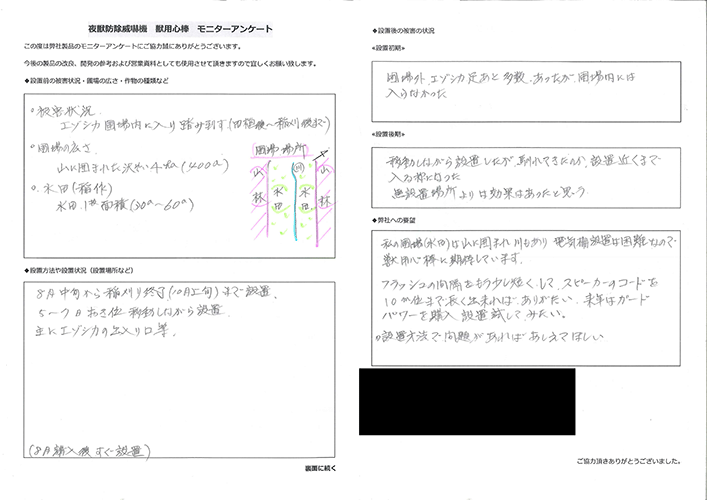 夜獣防除威嚇機　獣用心棒　モニターアンケート
この度は弊社製品のモニターアンケートにご協力誠にありがとうございます。
今後の製品の改良、開発の参考および営業資料としても使用させて頂きますので宜しくお願い致します。
◆設置前の被害状況・圃場の広さ・作物の種類など
○被害状況.
エゾシカ 圃場内に入り踏み倒す(田植後〜稲刈後まで)
○圃場の広さ.
山に囲まれた沢やい4ha(400a)
○. 水田(稲作)
水田.1枚面積(30a〜60a)
圃場場所
山 川 山
水 水
林 田 田 林
◆設置方法や設置状況（設置場所など）
8月中旬から稲刈り終了(10月上旬)まで設置.
5〜7日おき位 移動しながら設置.
主にエゾシカの出入り口等.
(8月購入後 すぐ設置)
裏面に続く
◆設置後の被害の状況
≪設置初期≫
圃場外.エゾシカ足あと多数.あったが 圃場内には
入らなかった
≪設置後期≫
移動しながら設置したが、馴れてきたのか.設置近くまで
入る様になった
無設置場所よりは効果はあったと思う.
◆弊社への要望
私の圃場(水田)は山に囲まれ川もあり 電気柵設置は困難なので
獣用心棒に期待しています.
フラッシュの間隔をもう少し短くして.スピーカーのコードを
10m位まで長く出来れば.ありがたい. 来年はガード
パワーを購入 設置 試してみたい。
○設置方法で問題があればおしえてほしい
ご協力頂きありがとうございました。